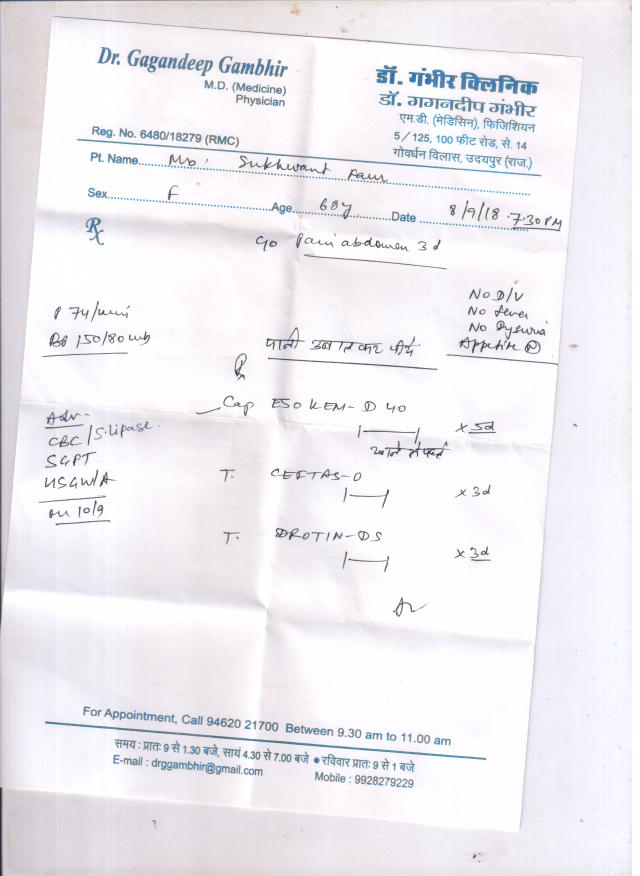 Dr. Gagandeep Gambhir
M.D. (Medicine)
Physician
Reg. No. 6480/18279 (RMC)
डॉ. गंभीर क्लिनिक
डॉ. गगनदीप गंभीर
एम.डी. (मेडिसिन), फिजिशियन
5/125, 100 फीट रोड, से. 14
गोवर्धन विलास, उदयपुर (राज.)
Pt. Name Mrs. Sukhwant Kaur
Sex F Age 68y Date 8/9/18 7:30 PM
Rx
c/o Pain abdomen 3d
No D/V
No fever
No Dysuria
Appetite (N)
P 74/min
BP 150/80 mb
पानी उबालकर पीये
Rx
Cap ESOKEM-D 40 x 5d
T. CEFTAS-O x 3d
T. DROTIN-DS x 3d
Adv-
CBC / S. lipase
SGPT
USG W/A
on 10/9
For Appointment, Call 94620 21700 Between 9.30 am to 11.00 am
समय : प्रातः 9 से 1.30 बजे, सायं 4.30 से 7.00 बजे ● रविवार प्रातः 9 से 1 बजे
E-mail : drggambhir@gmail.com Mobile : 9928279229